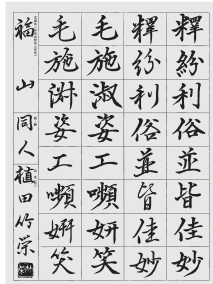 釋紛利俗並皆佳妙
釋紛利俗並皆佳妙
毛施淑姿工嚬妍笑
毛施淑姿工嚬妍笑
福山 同人 植田竹栄